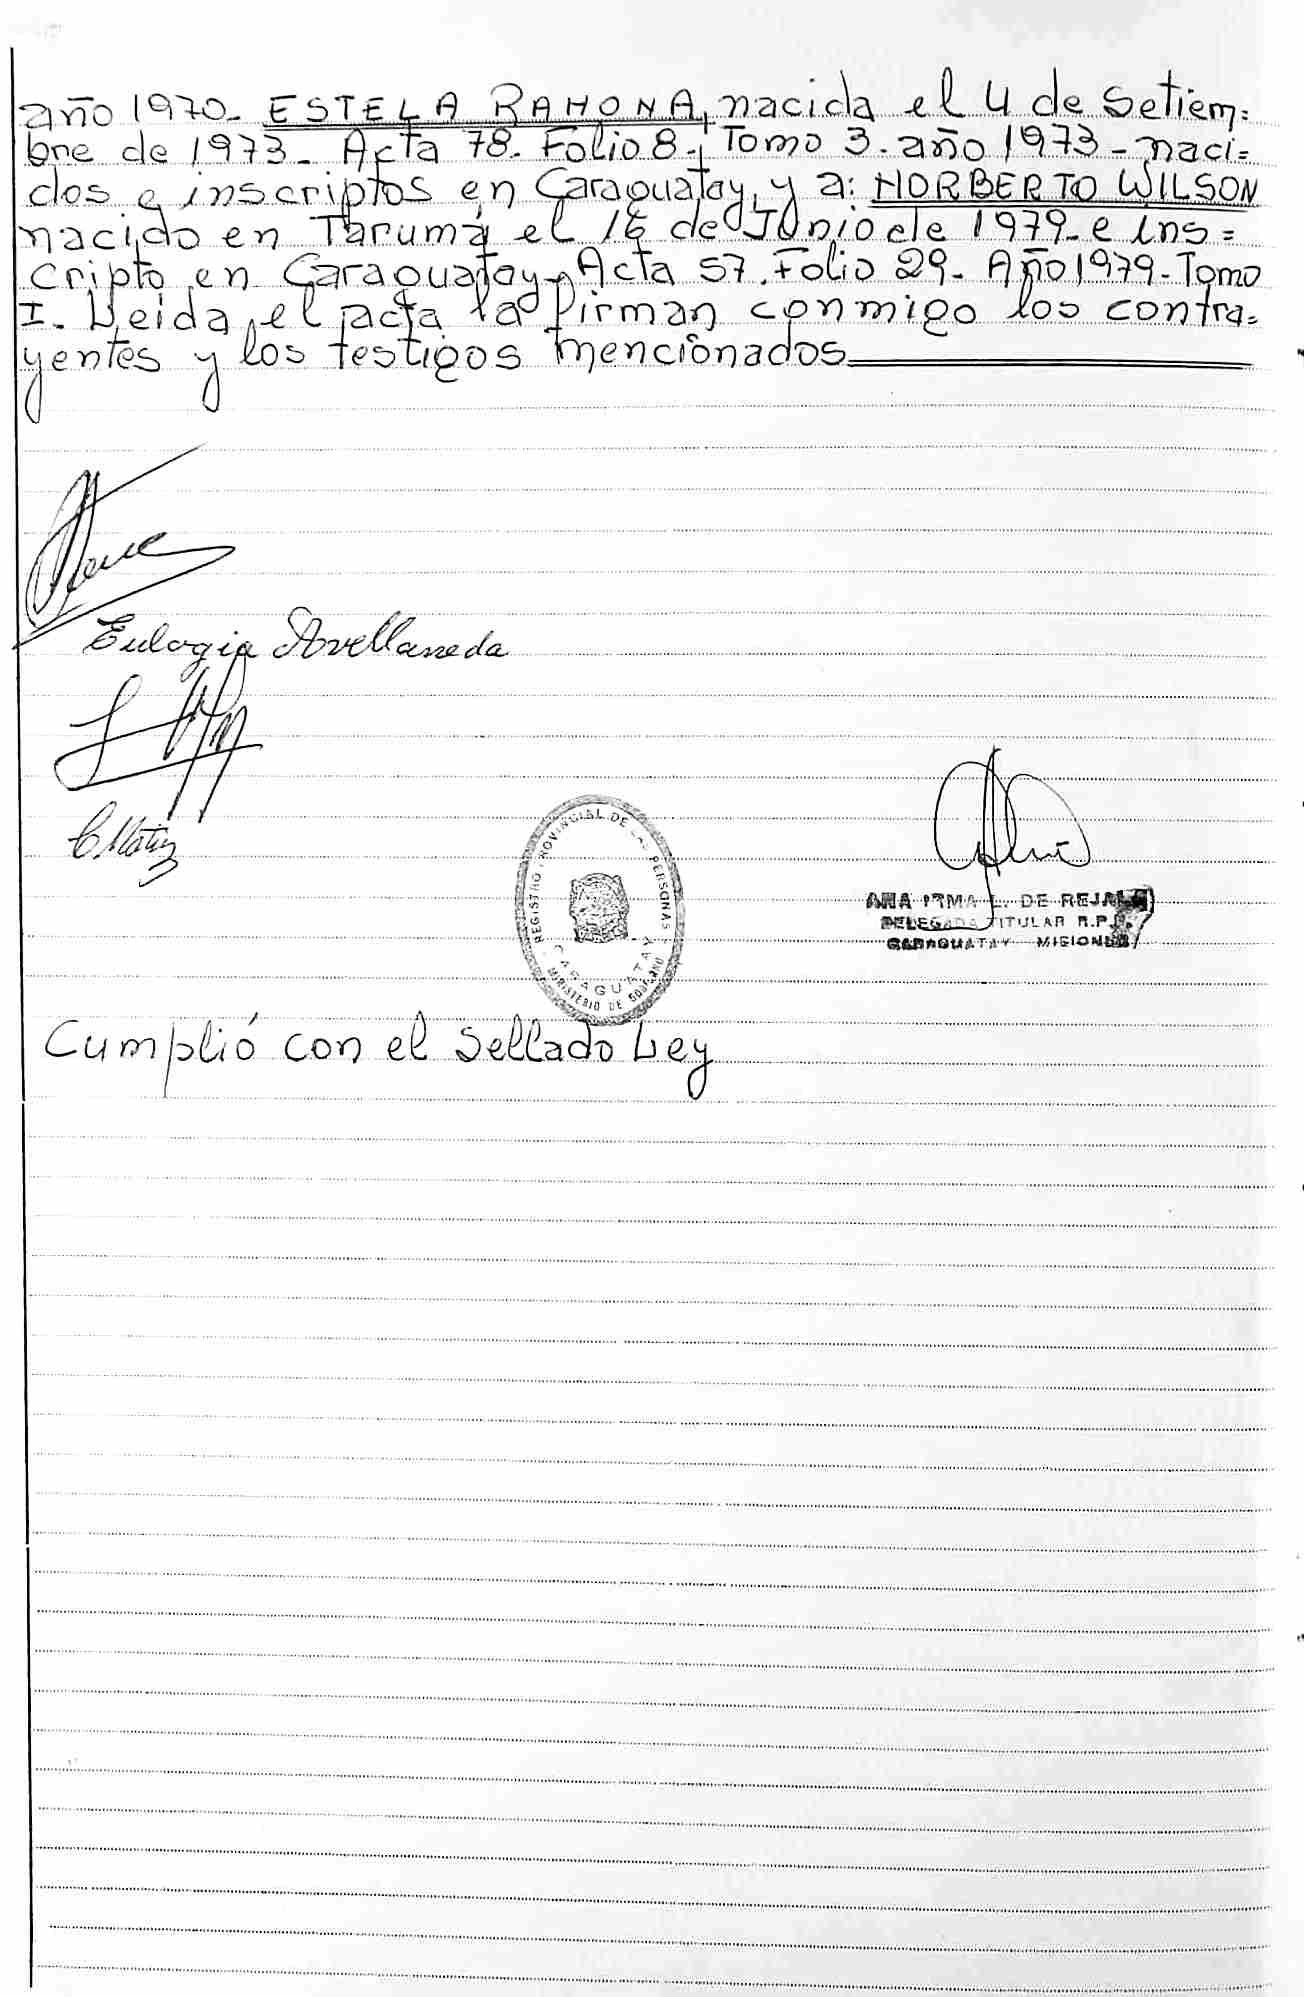 año 1970- ESTELA RAMONA, nacida el 4 de Setiem=
bre de 1973- Acta 78- Folio 8- Tomo 3- año 1973- naci=
dos e inscriptos en Caraguatay, y a: NORBERTO WILSON
nacido en Tarumá el 16 de Junio de 1979- e ins=
cripto en Caraguatay- Acta 57. Folio 29- Año 1979- Tomo
I- Leida el acta la firman conmigo los contra=
yentes y los testigos mencionados
Eulogia Avellaneda
REGISTRO PROVINCIAL DE LAS PERSONAS
CARAGUATAY
MINISTERIO DE GOBIERNO
ANA IRMA L. DE REJALA
DELEGADA TITULAR R.P.P.
CARAGUATAY MISIONES
Cumplió con el Sellado Ley